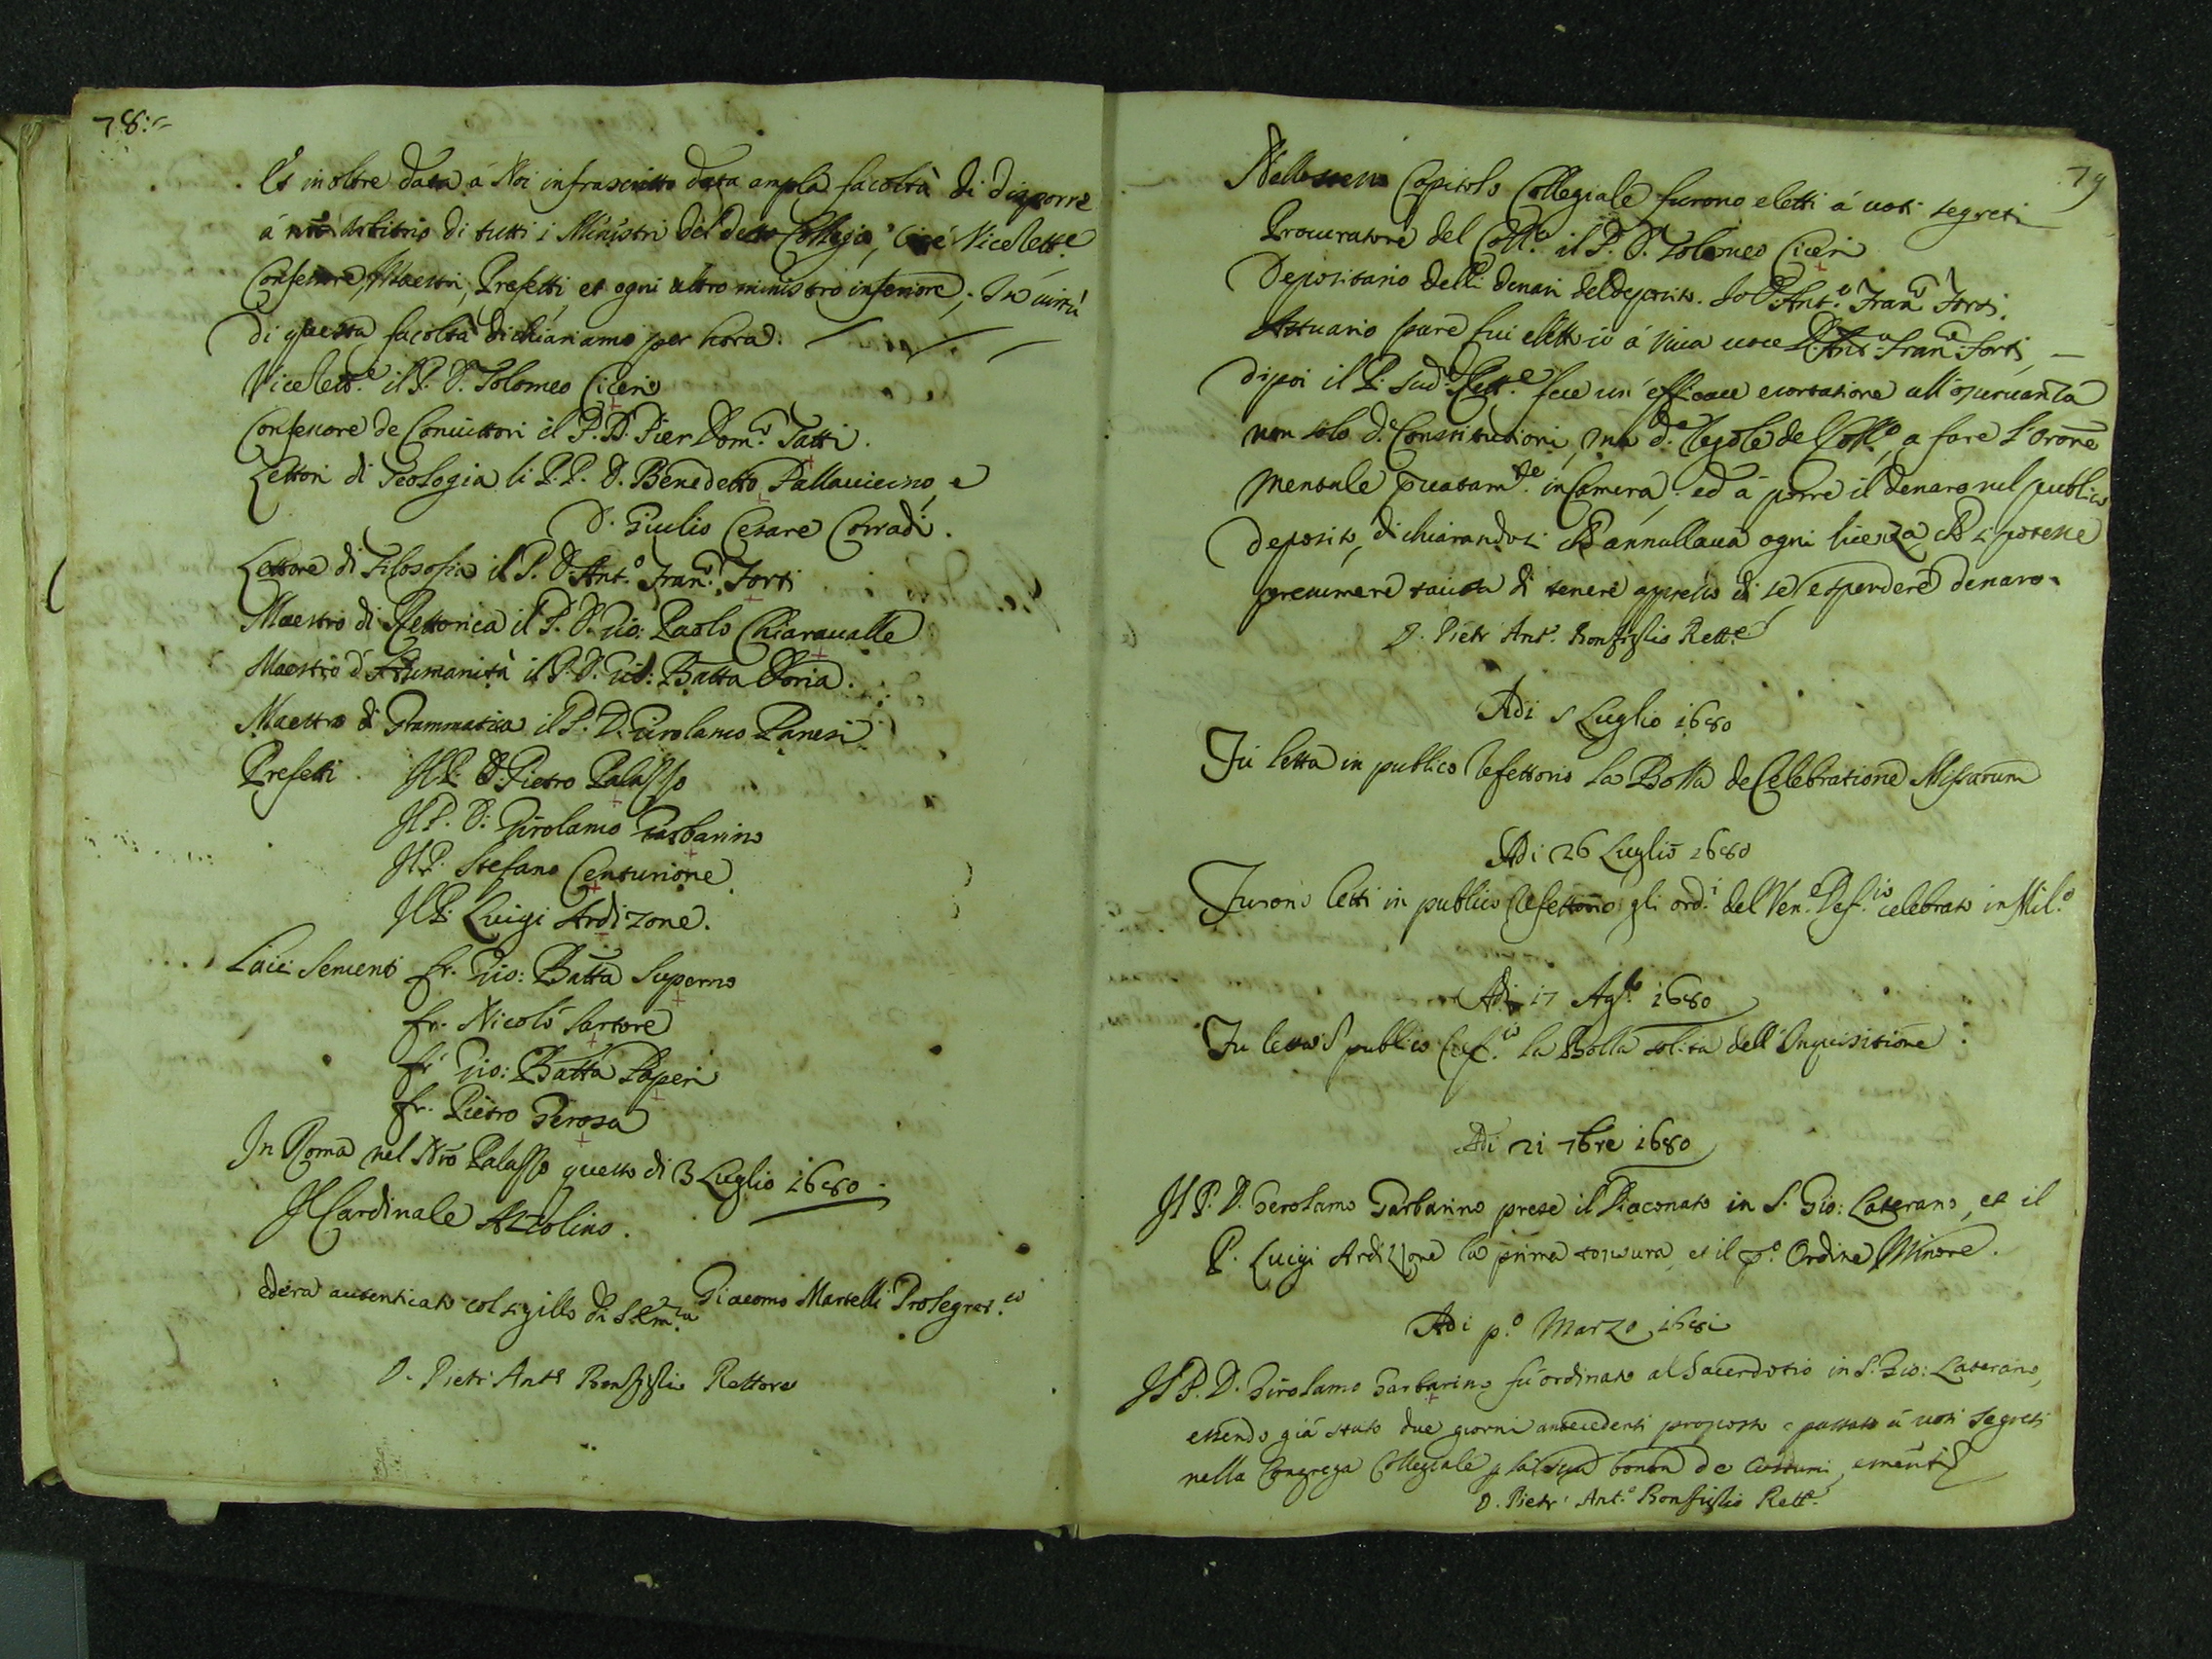 78:
Et in oltre data á Noi infrascritto data ampla facoltà di disporre
á nro Arbitrio di tutti i Ministri del detto Collegio, cioè Vicelett.e
Confessore, Maestri, Prefetti, et ogni altro ministro inferiore; In uirtù
di questa facoltà dichiariamo per hora.
Vicelett.e il P. D. Tolomeo Ciceri
Confessore de Conuittori il P. D. Pier Dom.o Tatti.
Lettori di Teologia li P.P. D. Benedetto Pallauicino, e
D. Giulio Cesare Corradi.
Lettore di Filosofia il P. D. Ant.o Fran.o Forti
Maestro di Rettorica il P. D. Gio: Paolo Chiaraualle
Maestro d'Humanità il P. D. Gio: Batta Doria.
Maestro di Grammatica il P. D. Girolamo Panesi
Prefetti. Il P. D. Pietro Palasso
Il P. D. Girolamo Garbarino
Il P. Stefano Centurione
Il P. Luigi Ardizone.
Laici Seruenti fr. Gio: Batta Superno
fr. Nicolò Sartore
fr. Gio: Batta Paperi
fr. Pietro Gerosa
In Roma nel Nro Palasso questo di 3 Luglio 1680.
Il Cardinale Azzolino.
Giacomo Martelli Prosegret.o
ed era autenticato col sigillo di S. Em.za
D. Pietr' Ant.o Bonfiglio Rettore
79
Nello stesso Capitolo Collegiale furono eletti á uoti segreti
Procuratore del Coll.o il P. D. Tolomeo Ciceri
Depositario delli denari del deposito. Io D. Ant.o Fran.o Forti.
Attuario pure fui eletto io á uiua uoce D. Ant.o Fran.o Forti,
dipoi il P. sud.o Rett.e fece un' efficace esortatione all'osseruanza
non solo d.e Constitutioni, ma d.e Regole del Coll.o, a fare l'orone
mentale priuatam.te in Camera, ed á porre il denaro nel publico
deposito, dichiarandosi che annullaua ogni licenza, che si potesse
presumere tacita di tenere appresso di sè, e spendere denaro.
D. Pietr' Ant.o Bonfiglio Rett.e
Adi 5 Luglio 1680
Fù letta in publico Refettorio la Bolla de Celebratione Missarum
Adi 26 Luglio 1680
Furono letti in publico Refettorio gli ord.i del Ven.e Def.io celebrato in Mil.o
Adi 17 Ag.o 1680
Fu letta in publico Ref.io la Bolla solita dell'Inquisitione.
Adi 21 7bre 1680
Il P. D. Gerolamo Garbarino prese il Diaconato in S. Gio: Laterano, et il
P. Luigi Ardizzone la prima tonsura, et il p.o Ordine Minore.
Adi p.o Marzo 1681
Il P. D. Girolamo Garbarino fù ordinato al Sacerdotio in S. Gio: Laterano,
essendo già stato due giorni antecedenti proposto e passato á uoti segreti
nella Congrega Collegiale p la sua bontà de Costumi,
D. Pietr' Ant.o Bonfiglio Rett.e